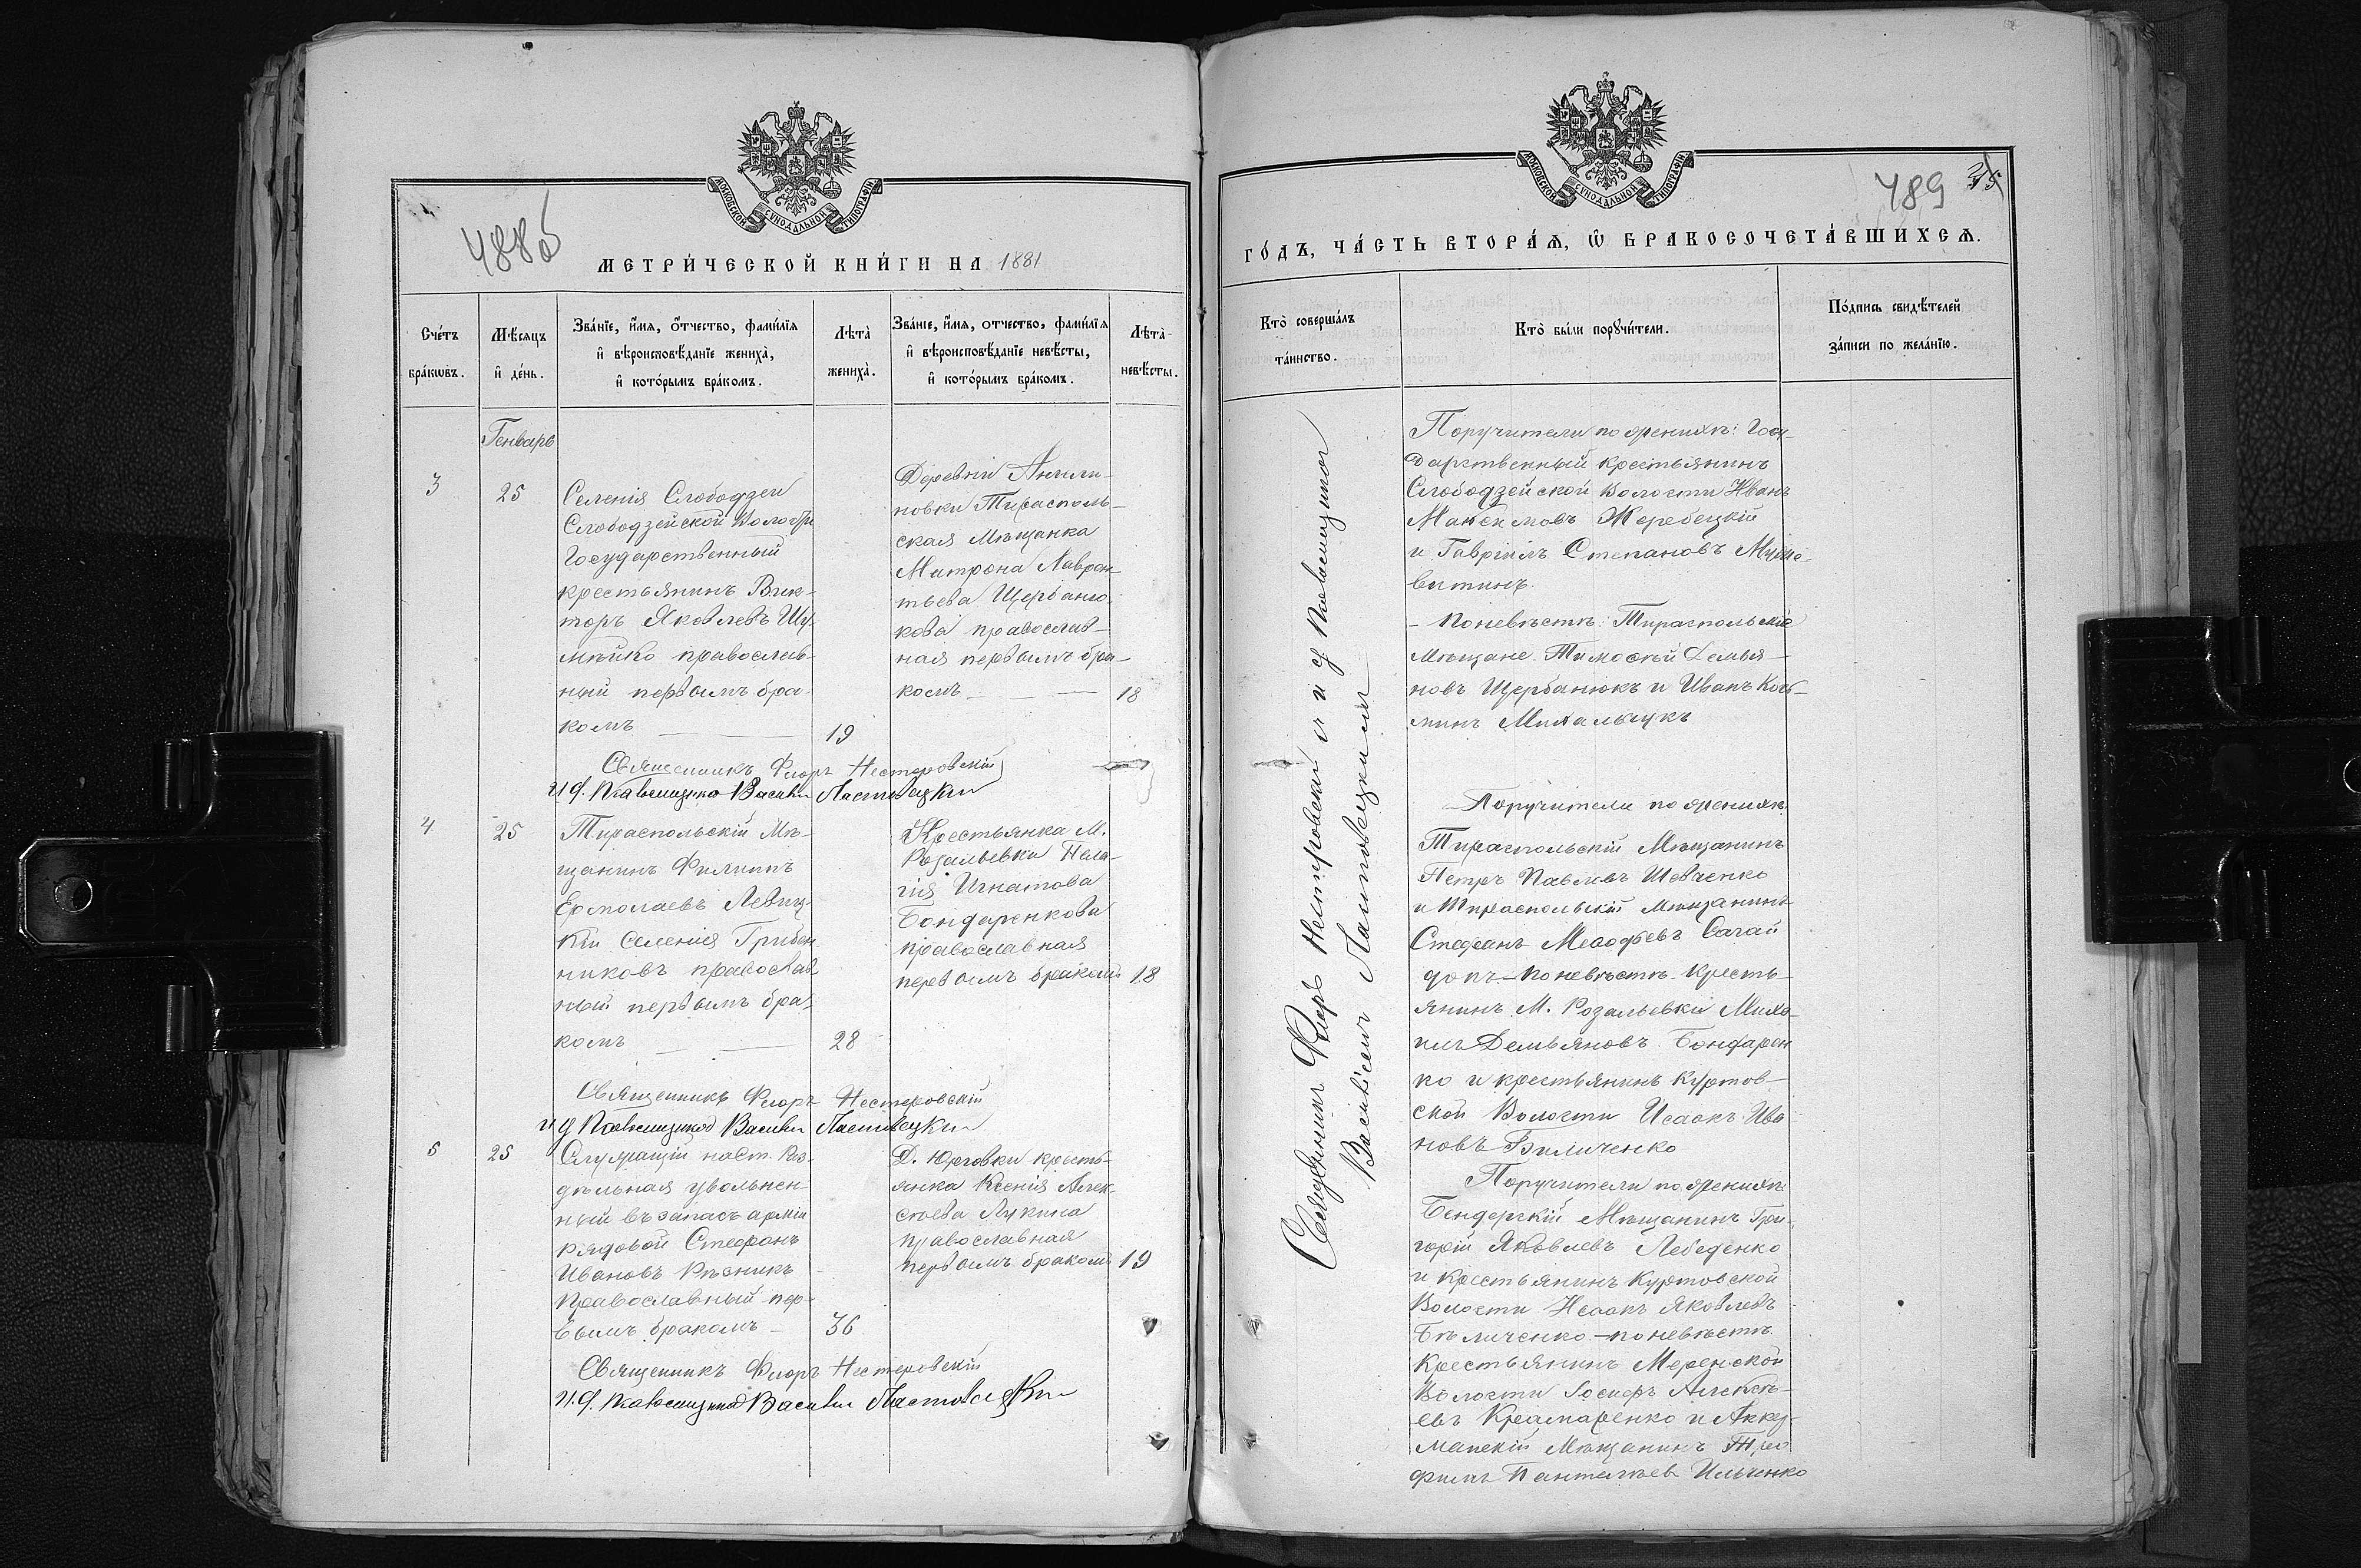 МОСКОВСКОЙ СѴНОДАЛЬНОЙ ТИПОГРАФІИ.
488об
МЕТРИ́ЧЕСКОЙ КНИ́ГИ НА 1881
Сче́тъ бра́кѡвъ.
Мѣ́сяцъ и҆ де́нь.
Зва́нїе, и҆́мя, о҆́тчество, фами́лїя
и҆ вѣроисповѣ́данїе жениха̀,
и҆ кото́рымъ бра́комъ.
Лѣта̀ жениха̀.
Зва́нїе, и҆́мя, отчество, фами́лїя
и҆ вѣроисповѣ́данїе невѣ́сты,
и҆ кото́рымъ бра́комъ.
Лѣта̀ невѣ́сты.
Генварь
3
25
Селенія Слободзеи
Слободзейской Волости
Государственный
крестьянинъ Вик-
торъ Яковлевъ
православ-
ный первымъ бра-
комъ
19
Деревни
новки Тирасполь-
ская Мѣщанка
Матрона Лаврен-
тьева Щербаню-
кова православ-
ная первымъ бра-
комъ
18
Священникъ Флоръ Нестеровскій
И.д. Псаломщика Василій Ластовецкій
4
25
Тираспольскій Мѣ-
щанинъ Филиппъ
Ермолаевъ Левиц-
кій Селенія Гребен
никовъ православ
ный первымъ бра-
комъ
28
Крестьянка М.
Розальевки Пела-
гія Игнатова
Бондаренкова
православная
первымъ бракомъ
18
Священникъ Флоръ Нестеровскій
И.д. Псаломщика Василій Ластовецкій
5
25
Служащій на Ст. Раз-
дѣльная уволнен-
ный въ запасъ арміи
рядовой Стефанъ
Ивановъ Рѣзникъ
Православный пер-
вымъ бракомъ
36
Д. Юрговки кресть-
янка Ксенія Алек-
сѣева Лукина
православная
первымъ бракомъ
19
Священникъ Флоръ Нестеровскій
И.д. Псаломщика Василій Ластовецкій
МОСКОВСКОЙ СѴНОДАЛЬНОЙ ТИПОГРАФІИ.
489
ГО́ДЪ, ЧА́СТЬ ВТОРА́Ѧ, Ѽ БРАКОСОЧЕТА́ВШИХСѦ.
Кто̀ соверша́лъ
та́инство.
Кто̀ бы́ли порꙋчи́тели.
По́дпись свидѣ́телей
за́писи по жела́нїю.
Священникъ Флоръ Нестеровскій и и д Псаломщика
Василій Ластовецкій
Поручители по женихѣ: Госу-
дарственный крестьянинъ
Слободзейской Волости Иванъ
Максимовъ Жеребецкій
и Гавріилъ Степановъ
витинъ.
- По невѣстѣ: Тираспольскіе
Мѣщане. Тимофей Демья-
новъ Щербанюкъ и Иванъ Козь-
минъ Михальчукъ
Поручители по женихѣ
Тираспольскій Мѣщанинъ
Петръ Павловъ Шевченко
и Тираспольскій Мѣщанинъ
Стефанъ Меѳодьевъ Сагай
дакъ - по невѣстѣ - кресть
янинъ М. Розальевки Миха-
илъ Демьяновъ Бондарен
ко и крестьянинъ Куртов-
ской Волости Исаакъ Ива
новъ Биличенко
Поручители по женихѣ
Бендерскій Мѣщанинъ Гри-
горій Яковлевъ Лебеденко
и Крестьянинъ Куртовской
Волости Исаакъ Яковлевъ
Бѣличенко - по невѣстѣ
Крестьянинъ Меренской
Волости Іосифъ Алексѣ-
евъ Крамаренко и Аккер-
манскій Мѣщанинъ Тро
фимъ Пантелѣевъ Ильченко